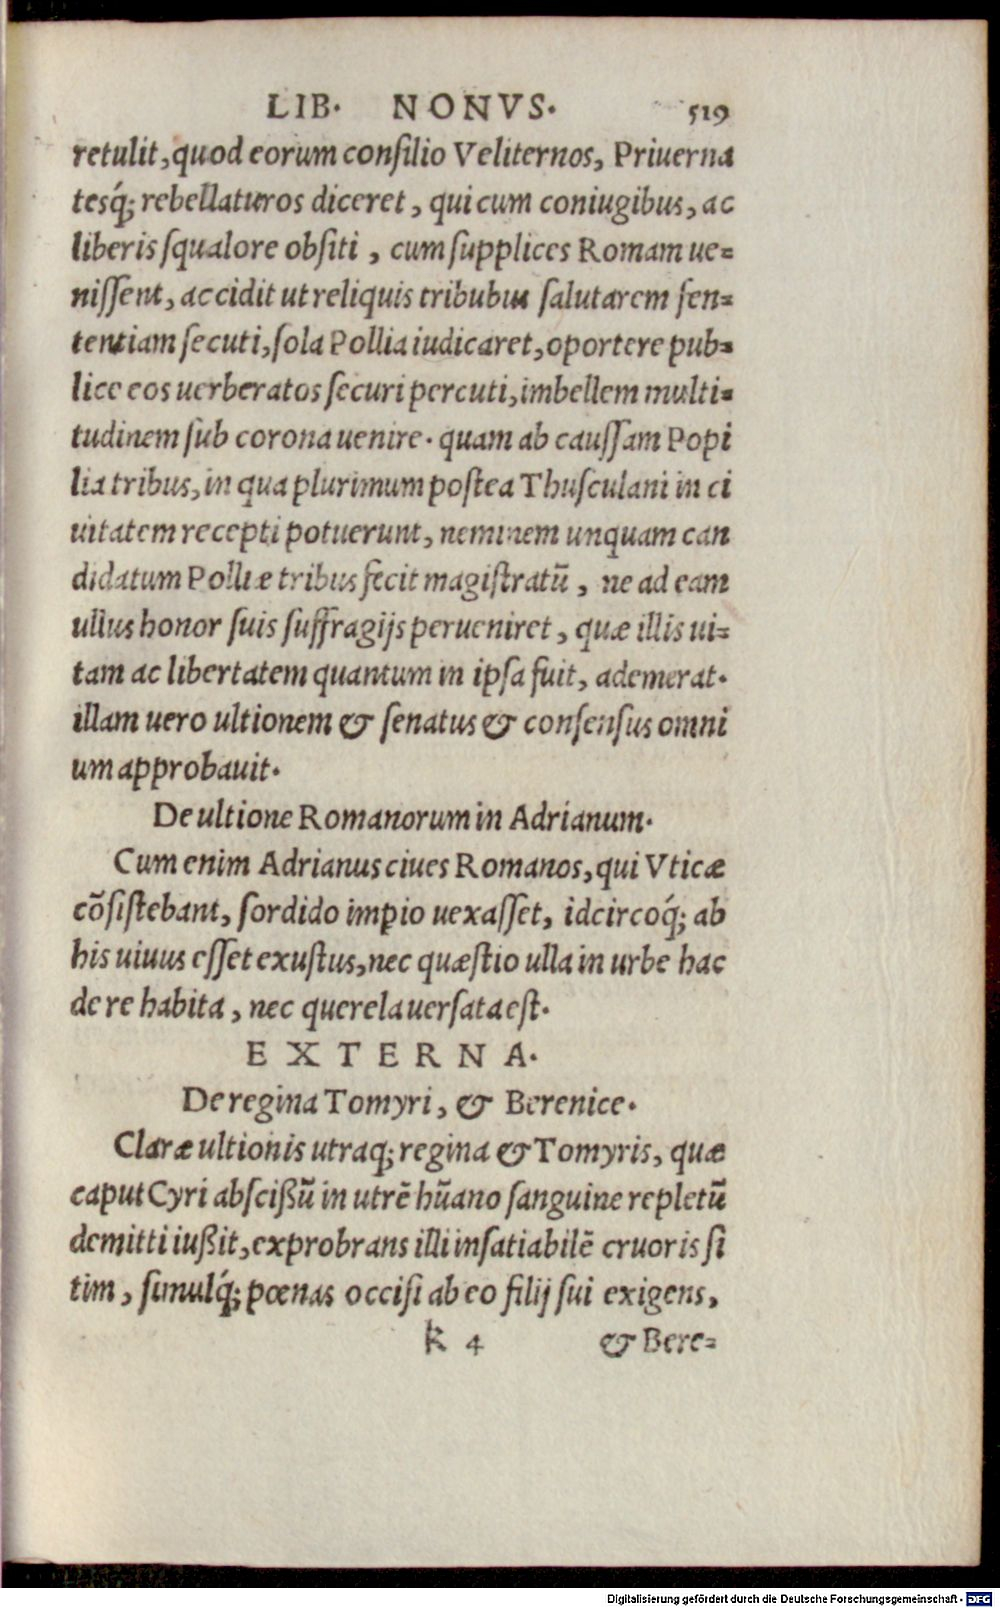 LIB. NONVS. 519
retulit, quod eorum conſilio Veliternos, Priuerna
tesq́; rebellaturos diceret, qui cum coniugibus, ac
liberis ſqualore obſiti, cum ſupplices Romam ue=
niſſent, accidit ut reliquis tribubus ſalutarem ſen=
tentiam ſecuti, ſola Pollia iudicaret, oportere pub=
lice eos uerberatos ſecuri percuti, imbellem multi=
tudinem ſub corona uenire. quam ab cauſſam Popi
lia tribus, in qua plurimum poſtea Thuſculani in ci
uitatem recepti potuerunt, neminem unquam can
didatum Polliæ tribus fecit magiſtratũ, ne ad eam
ullus honor ſuis ſuffragijs perueniret, quæ illis ui=
tam ac libertatem quantum in ipſa fuit, ademerat.
illam uero ultionem & ſenatus & conſenſus omni
um approbauit.
De ultione Romanorum in Adrianum.
Cum enim Adrianus ciues Romanos, qui Vticæ
cõſiſtebant, ſordido impio uexaſſet, idcircoq́; ab
his uiuus eſſet exuſtus, nec quæſtio ulla in urbe hac
de re habita, nec querela uerſata eſt.
EXTERNA.
De regina Tomyri, & Berenice.
Claræ ultionis utraq; regina & Tomyris, quæ
caput Cyri abſcißũ in utrẽ hũano ſanguine repletũ
demitti iußit, exprobrans illi inſatiabilẽ cruoris ſi
tim, ſimulq́; pœnas occiſi ab eo filij ſui exigens,
k 4 & Bere=
Digitalisierung gefördert durch die Deutsche Forschungsgemeinschaft - DFG